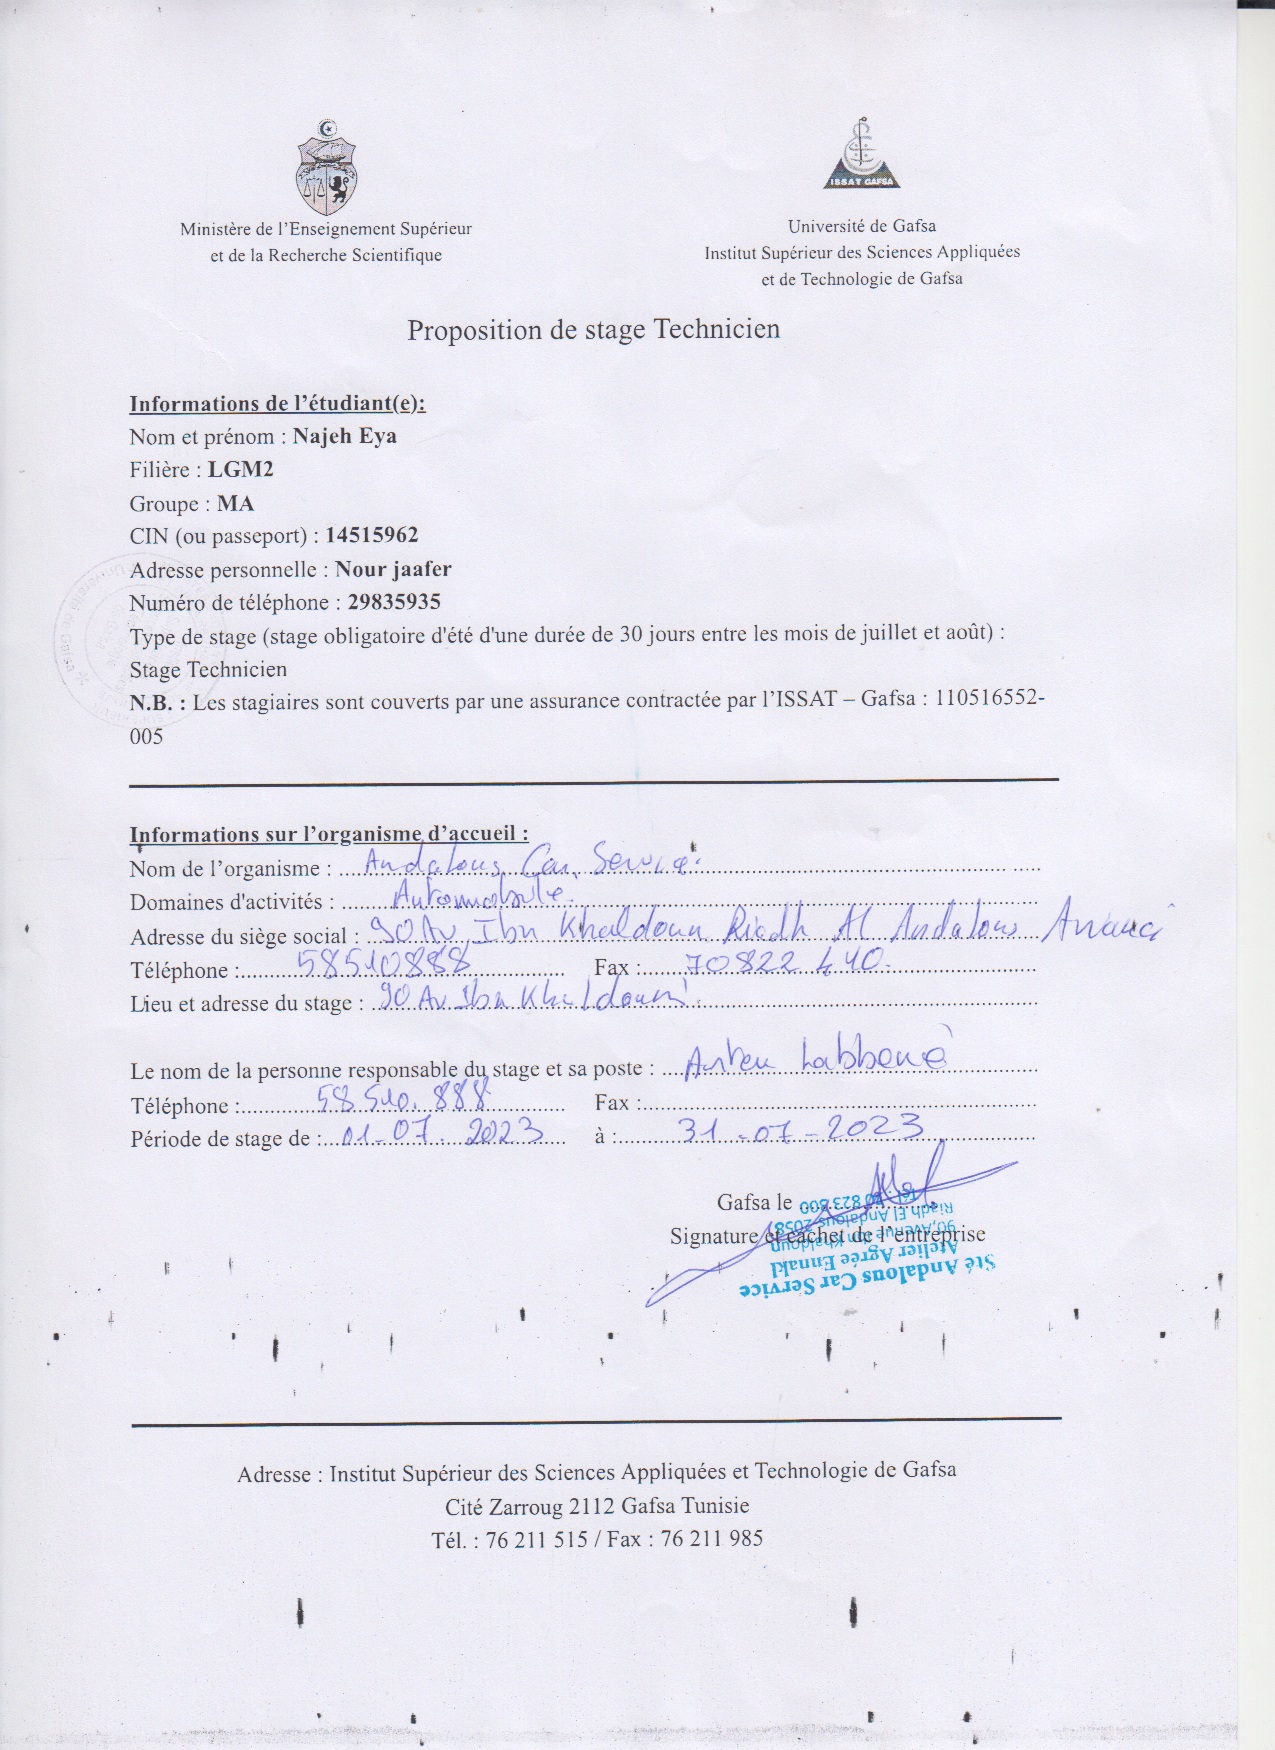 Ministère de l'Enseignement Supérieur
et de la Recherche Scientifique
ISSAT GAFSA
Université de Gafsa
Institut Supérieur des Sciences Appliquées
et de Technologie de Gafsa
Proposition de stage Technicien
Informations de l'étudiant(e):
Nom et prénom : Najeh Eya
Filière : LGM2
Groupe : MA
CIN (ou passeport) : 14515962
Adresse personnelle : Nour jaafer
Numéro de téléphone : 29835935
Type de stage (stage obligatoire d'été d'une durée de 30 jours entre les mois de juillet et août) :
Stage Technicien
N.B. : Les stagiaires sont couverts par une assurance contractée par l'ISSAT – Gafsa : 110516552-
005
Informations sur l'organisme d'accueil :
Nom de l'organisme : Andalous Car Service
Domaines d'activités : Automobile
Adresse du siège social : 90 Av Ibn Khaldoun Riadh Al Andalous
Téléphone : 58510888 Fax : 70822440
Lieu et adresse du stage : 90 Av Ibn Khaldoun
Le nom de la personne responsable du stage et sa poste :
Téléphone : 58 510. 888 Fax :
Période de stage de : 01-07. 2023 à : 31-07-2023
Gafsa le
Signature et cachet de l'entreprise
Sté Andalous Car Service
Atelier Agrée Ennakl
90, Avenue Ibn Khaldoun
Riadh El Andalous 2058
Adresse : Institut Supérieur des Sciences Appliquées et Technologie de Gafsa
Cité Zarroug 2112 Gafsa Tunisie
Tél. : 76 211 515 / Fax : 76 211 985